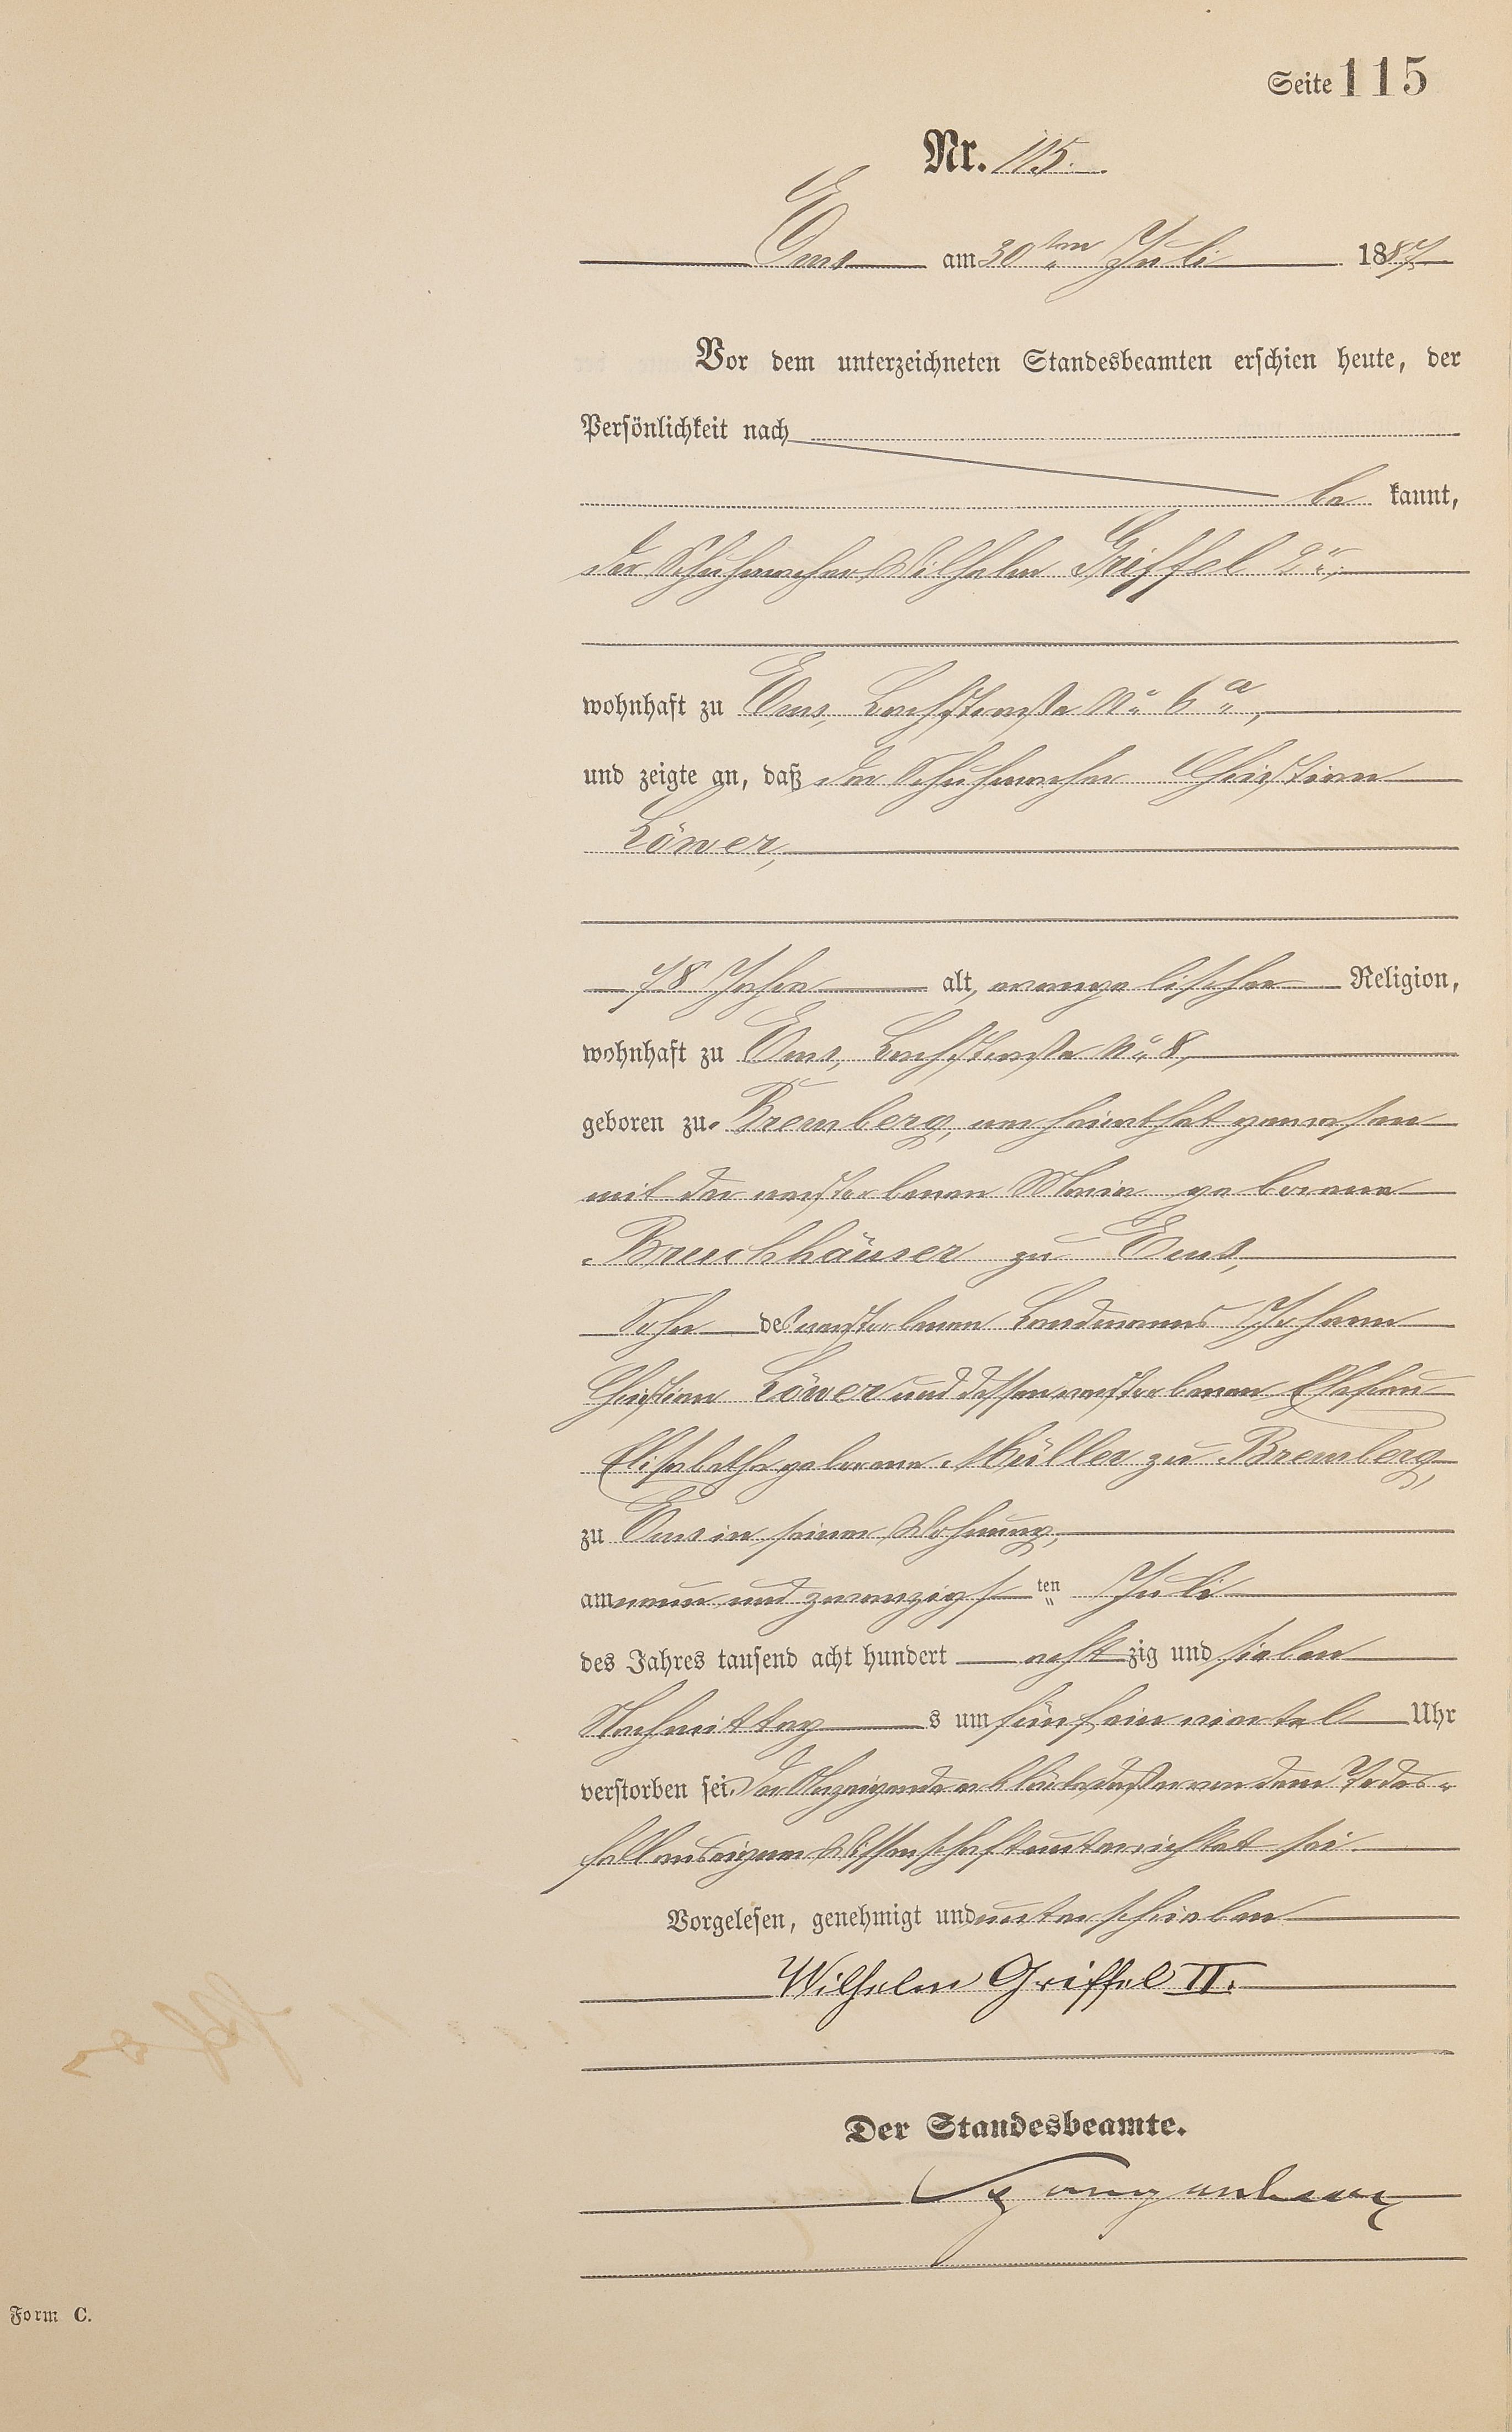 Seite 115
Nr. 115.
Ems am 30ten Juli 1887
Vor dem unterzeichneten Standesbeamten erschien heute, der
Persönlichkeit nach
be kannt,
der Schuhmacher Wilhelm Griffel 2r,
wohnhaft zu Ems, Bachstraße No 6a,
und zeigte an, daß der Schuhmacher Christian
Löwer,
78 Jahre alt, evangelischer Religion,
wohnhaft zu Ems, Bachstraße No 8,
geboren zu Bremberg, verheirathet gewesen
mit der verstorbenen Maria geborene
Breuchhäuser zu Ems,
Sohn des verstorbenen Landmanns Johann
Christian Löwer und dessen verstorbenen Ehefrau
Elisabetha geborene Müller zu Bremberg,
zu Ems in seiner Wohnung,
am neun und zwanzigsten Juli
des Jahres tausend acht hundert acht zig und sieben
Nachmittag s um fünf ein viertel Uhr
verstorben sei. Der Anzeigende erklärte, daß er von dem Todes-
fall aus eigener Wissenschaft unterrichtet sei.
Vorgelesen, genehmigt und unterschrieben
Wilhelm Griffel II.
Der Standesbeamte.
Form C.